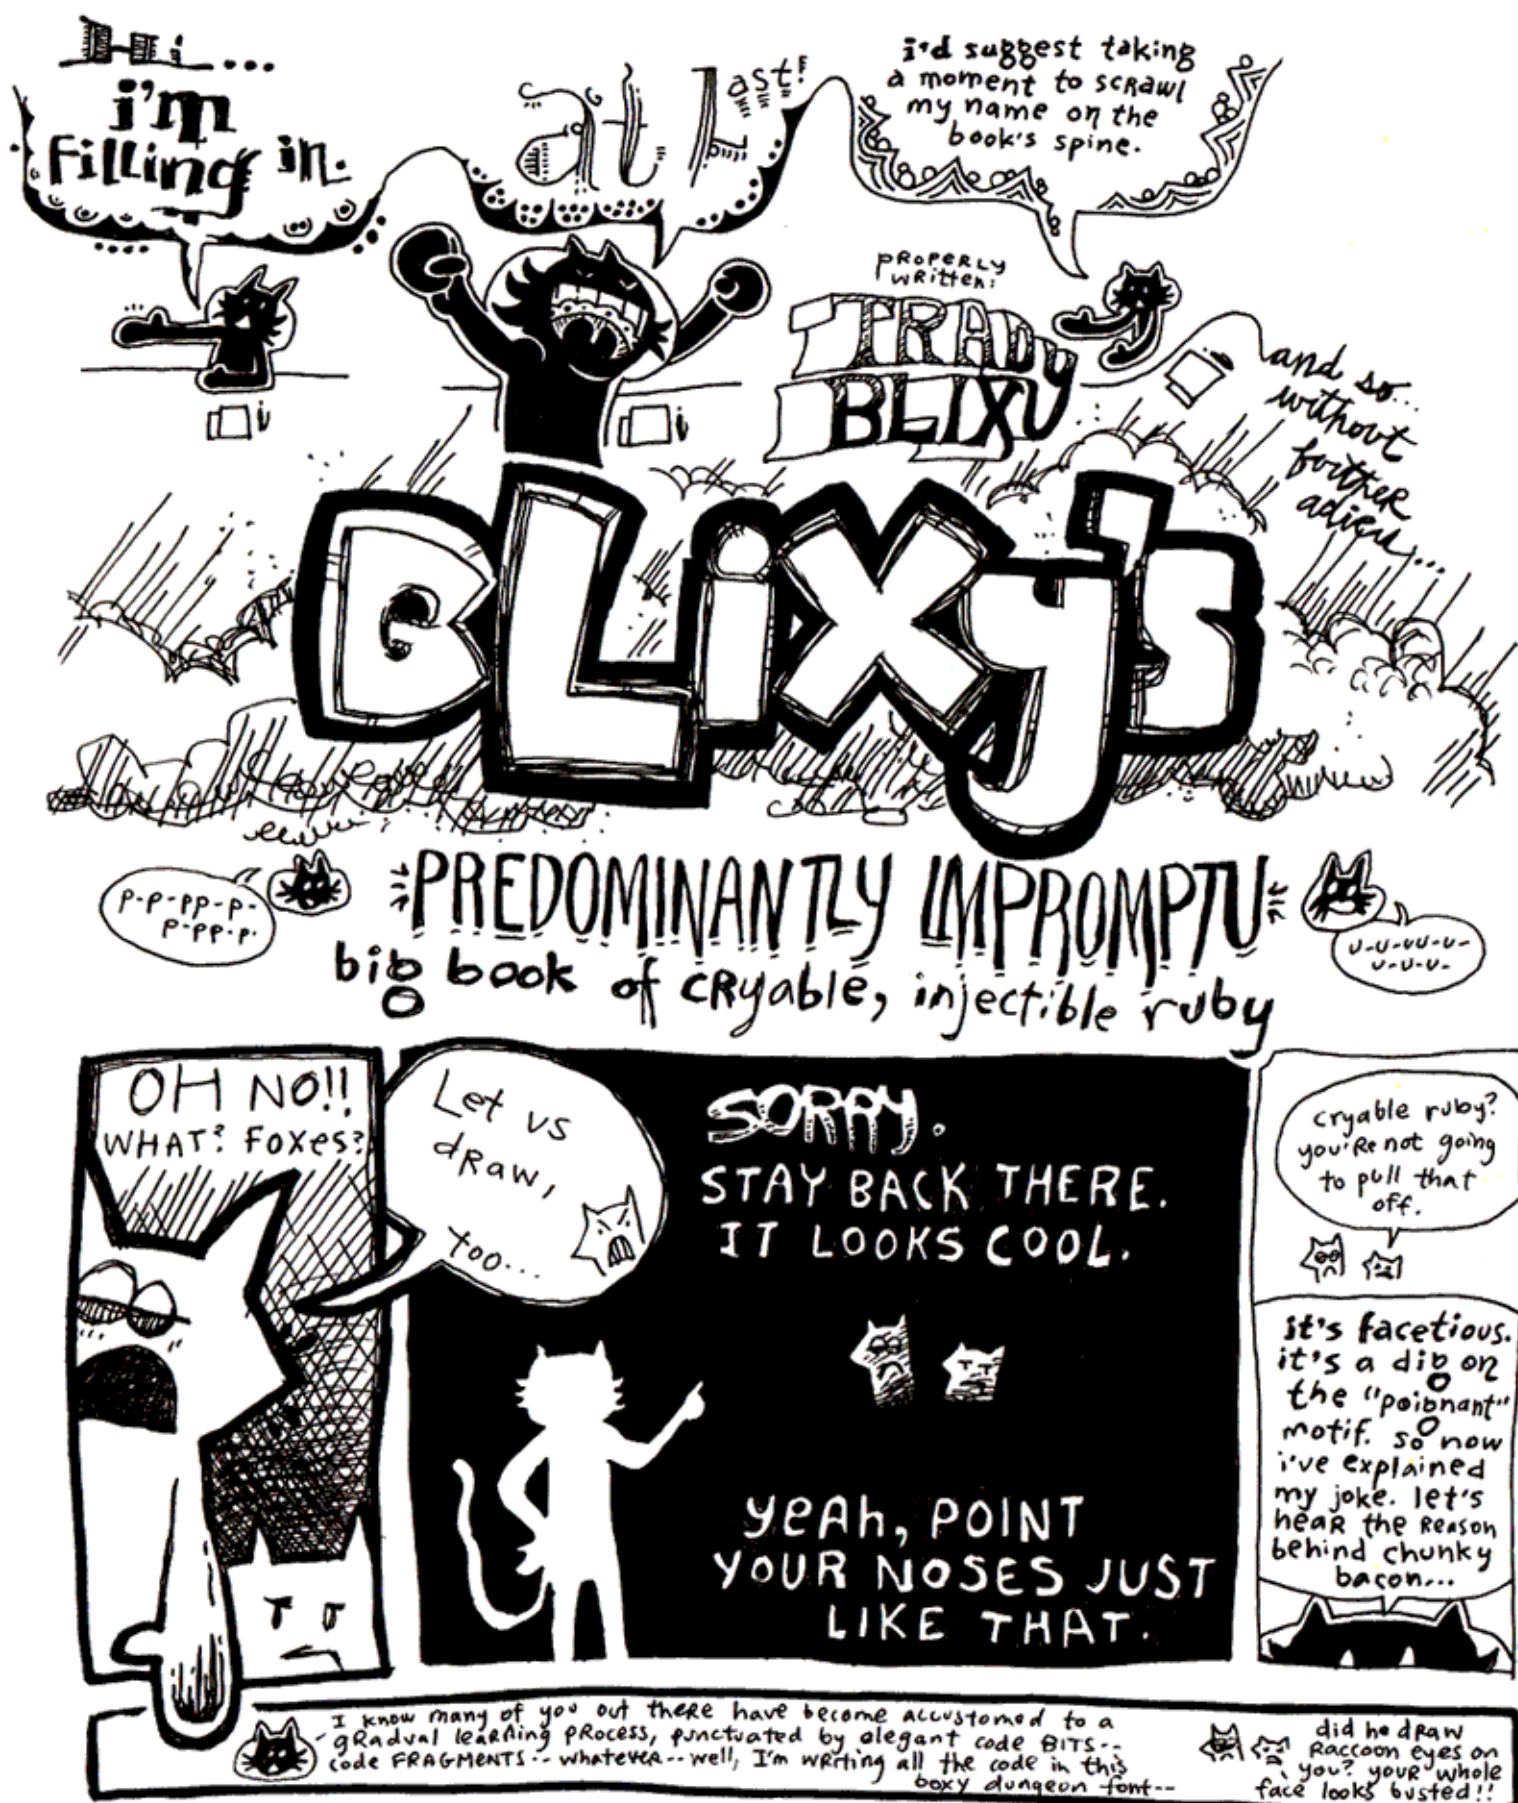 Hi...
i'm
filling in.
at Last!
i'd suggest taking
a moment to scrawl
my name on the
book's spine.
properly
written:
TRADY
BLIXY
and so...
without
further
adieu...
BLiXy's
p-p-pp-p-
p-pp-p.
PREDOMINANTLY IMPROMPTU
u-u-uu-u-
u-u-u-
big book of cryable, injectible ruby
OH NO!!
WHAT? FOXES?
Let us
draw,
too...
SORRY.
STAY BACK THERE.
IT LOOKS COOL.
yeAh, POINT
YOUR NOSES JUST
LIKE THAT.
cryable ruby?
you're not going
to pull that
off.
it's facetious.
it's a dig on
the "poignant"
motif. so now
i've explained
my joke. let's
hear the reason
behind chunky
bacon...
I know many of you out there have become accustomed to a
gradual learning process, punctuated by elegant code BITS--
code FRAGMENTS-- whatever-- well, I'm writing all the code in this
boxy dungeon font--
did he draw
Raccoon eyes on
you? your whole
face looks busted!!